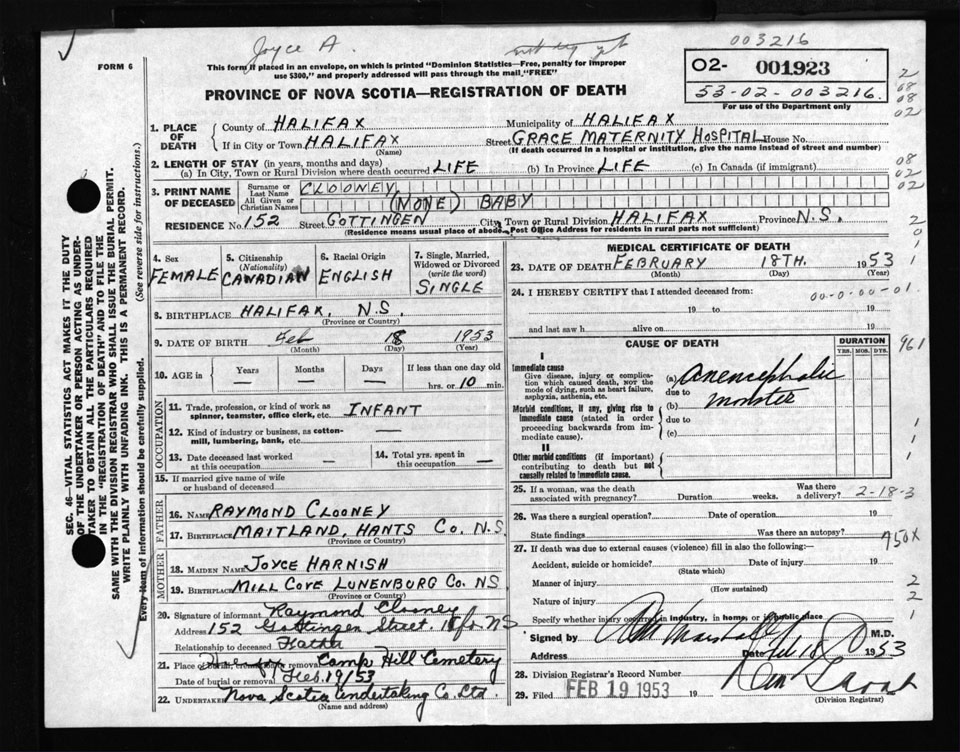 Joyce A.
003216
FORM 6
This form if placed in an envelope, on which is printed "Dominion Statistics—Free, penalty for improper
use $300," and properly addressed will pass through the mail "FREE"
O2- 001923
53-02-003216.
For use of the Department only
PROVINCE OF NOVA SCOTIA—REGISTRATION OF DEATH
2
08
08
02
08
02
02
2
0
1
1
961
1
1
1
2
2
1
SEC. 46—VITAL STATISTICS ACT MAKES IT THE DUTY
OF THE UNDERTAKER OR PERSON ACTING AS UNDER-
TAKER TO OBTAIN ALL THE PARTICULARS REQUIRED
IN THE "REGISTRATION OF DEATH" AND TO FILE THE
SAME WITH THE DIVISION REGISTRAR WHO SHALL ISSUE THE BURIAL PERMIT.
WRITE PLAINLY WITH UNFADING INK. THIS IS A PERMANENT RECORD.
Every item of information should be carefully supplied. (See reverse side for instructions.)
1. PLACE OF DEATH
County of HALIFAX Municipality of HALIFAX
If in City or Town HALIFAX Street GRACE MATERNITY HOSPITAL House No.
(Name) (If death occurred in a hospital or institution, give the name instead of street and number)
2. LENGTH OF STAY (in years, months and days)
(a) In City, Town or Rural Division where death occurred LIFE (b) In Province LIFE (c) In Canada (if immigrant)
3. PRINT NAME OF DECEASED
Surname or Last Name CLOONEY
All Given or Christian Names (NONE) BABY
RESIDENCE No. 152 Street GOTTINGEN City, Town or Rural Division HALIFAX Province N.S.
(Residence means usual place of abode. Post Office Address for residents in rural parts not sufficient)
4. Sex FEMALE
5. Citizenship (Nationality) CANADIAN
6. Racial Origin ENGLISH
7. Single, Married, Widowed or Divorced (write the word) SINGLE
8. BIRTHPLACE HALIFAX, N.S.
(Province or Country)
9. DATE OF BIRTH Feb 18 1953
(Month) (Day) (Year)
10. AGE in Years Months Days If less than one day old
hrs. or 10 min.
OCCUPATION
11. Trade, profession, or kind of work as
spinner, teamster, office clerk, etc. INFANT
12. Kind of industry or business, as cotton-
mill, lumbering, bank, etc. —
13. Date deceased last worked
at this occupation —
14. Total yrs. spent in
this occupation —
15. If married give name of wife
or husband of deceased
FATHER
16. NAME RAYMOND CLOONEY
17. BIRTHPLACE MAITLAND, HANTS CO. N.S
(Province or Country)
MOTHER
18. MAIDEN NAME JOYCE HARNISH
19. BIRTHPLACE MILL COVE LUNENBURG CO. NS
(Province or Country)
20. Signature of informant Raymond Clooney
Address 152 Gottingen Street. Hfx NS
Relationship to deceased Father
21. Place of burial, cremation or removal Camp Hill Cemetery
Date of burial or removal Feb. 19/53
22. UNDERTAKER Nova Scotia Undertaking Co. Ltd.
(Name and address)
MEDICAL CERTIFICATE OF DEATH
23. DATE OF DEATH FEBRUARY 18TH. 1953
(Month) (Day) (Year)
24. I HEREBY CERTIFY that I attended deceased from:
00-0-00-01.
19 to 19
and last saw h alive on 19
CAUSE OF DEATH
DURATION
YRS. MOS. DYS.
I
Immediate cause
Give disease, injury or complica-
tion which caused death, NOT the
mode of dying, such as heart failure,
asphyxia, asthenia, etc.
(a) anencephalic
due to
(b) monster
due to
(c)
Morbid conditions, if any, giving rise to
immediate cause (stated in order
proceeding backwards from im-
mediate cause).
II
Other morbid conditions (if important)
contributing to death but not
causally related to immediate cause.
25. If a woman, was the death
associated with pregnancy? Duration weeks. Was there
a delivery? 2-18-3
26. Was there a surgical operation? Date of operation 19
State findings Was there an autopsy?
950X
27. If death was due to external causes (violence) fill in also the following:—
Accident, suicide or homicide? Date of injury 19
(State which)
Manner of injury
(How sustained)
Nature of injury
Specify whether injury occurred in industry, in home, or in public place
Signed by Marshall M.D.
Address Date Feb 18 1953
28. Division Registrar's Record Number
29. Filed FEB 19 1953 19
(Division Registrar)